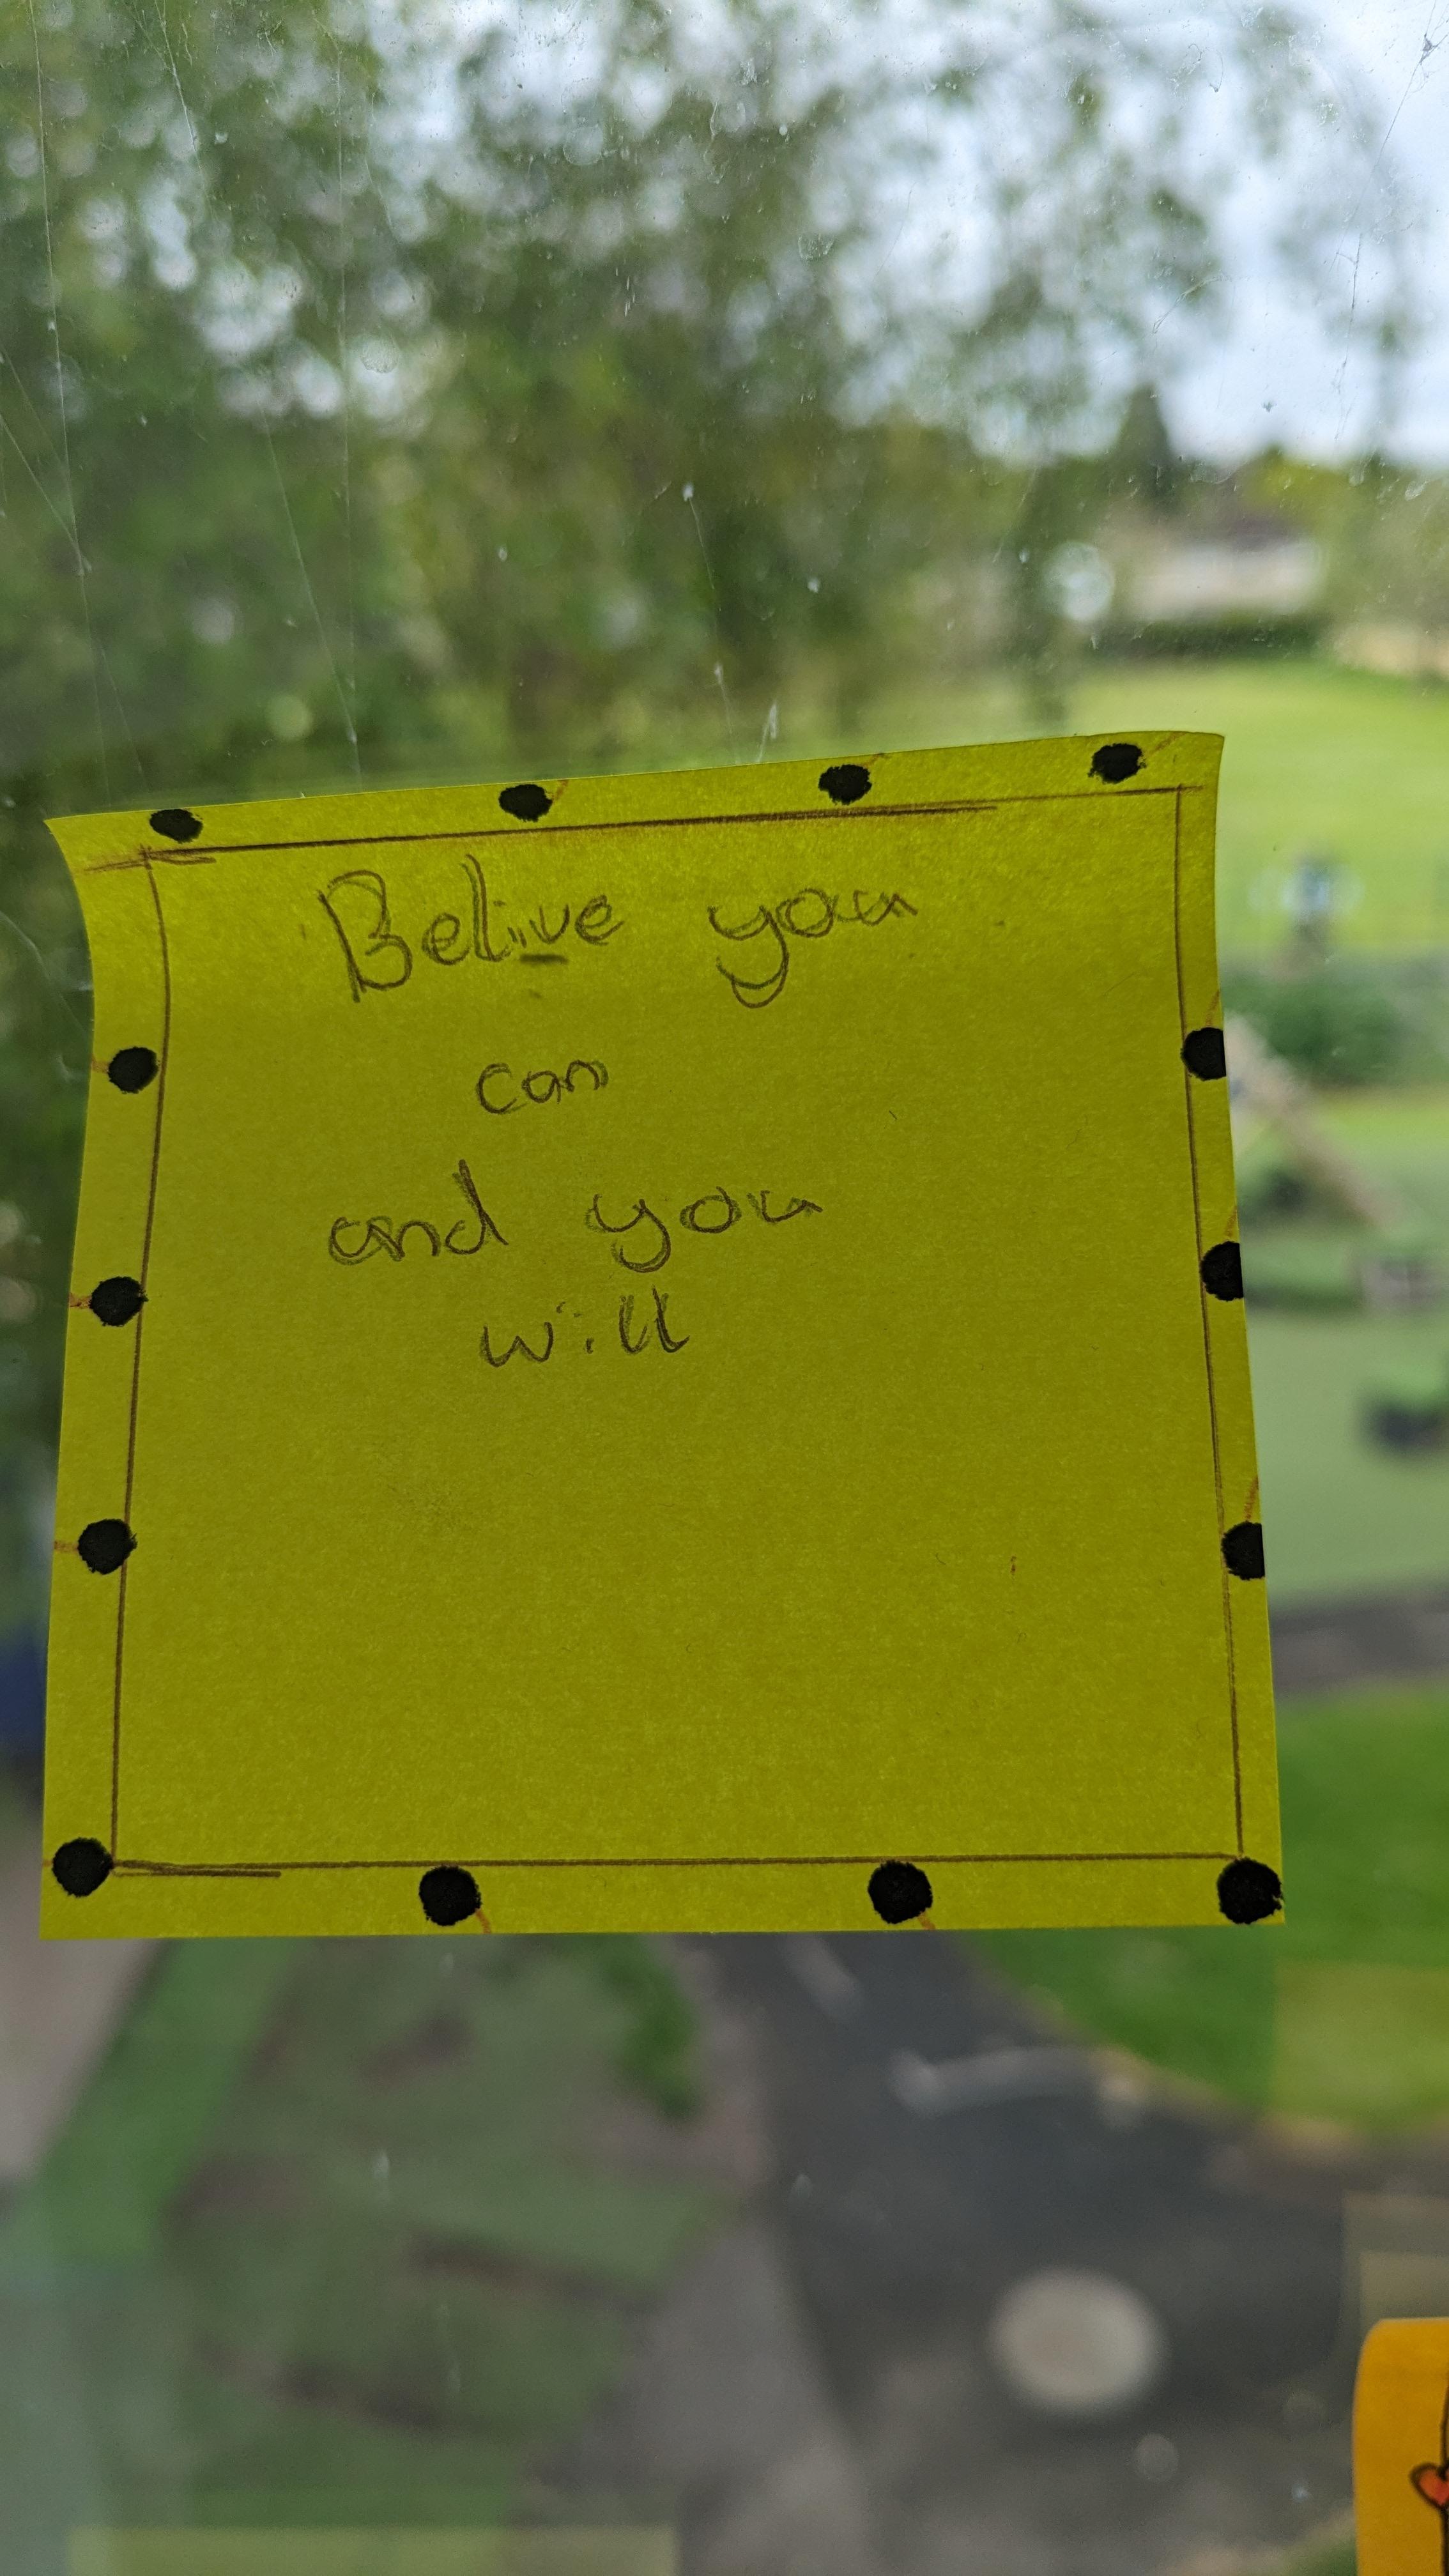 Belive you
can
and you
will